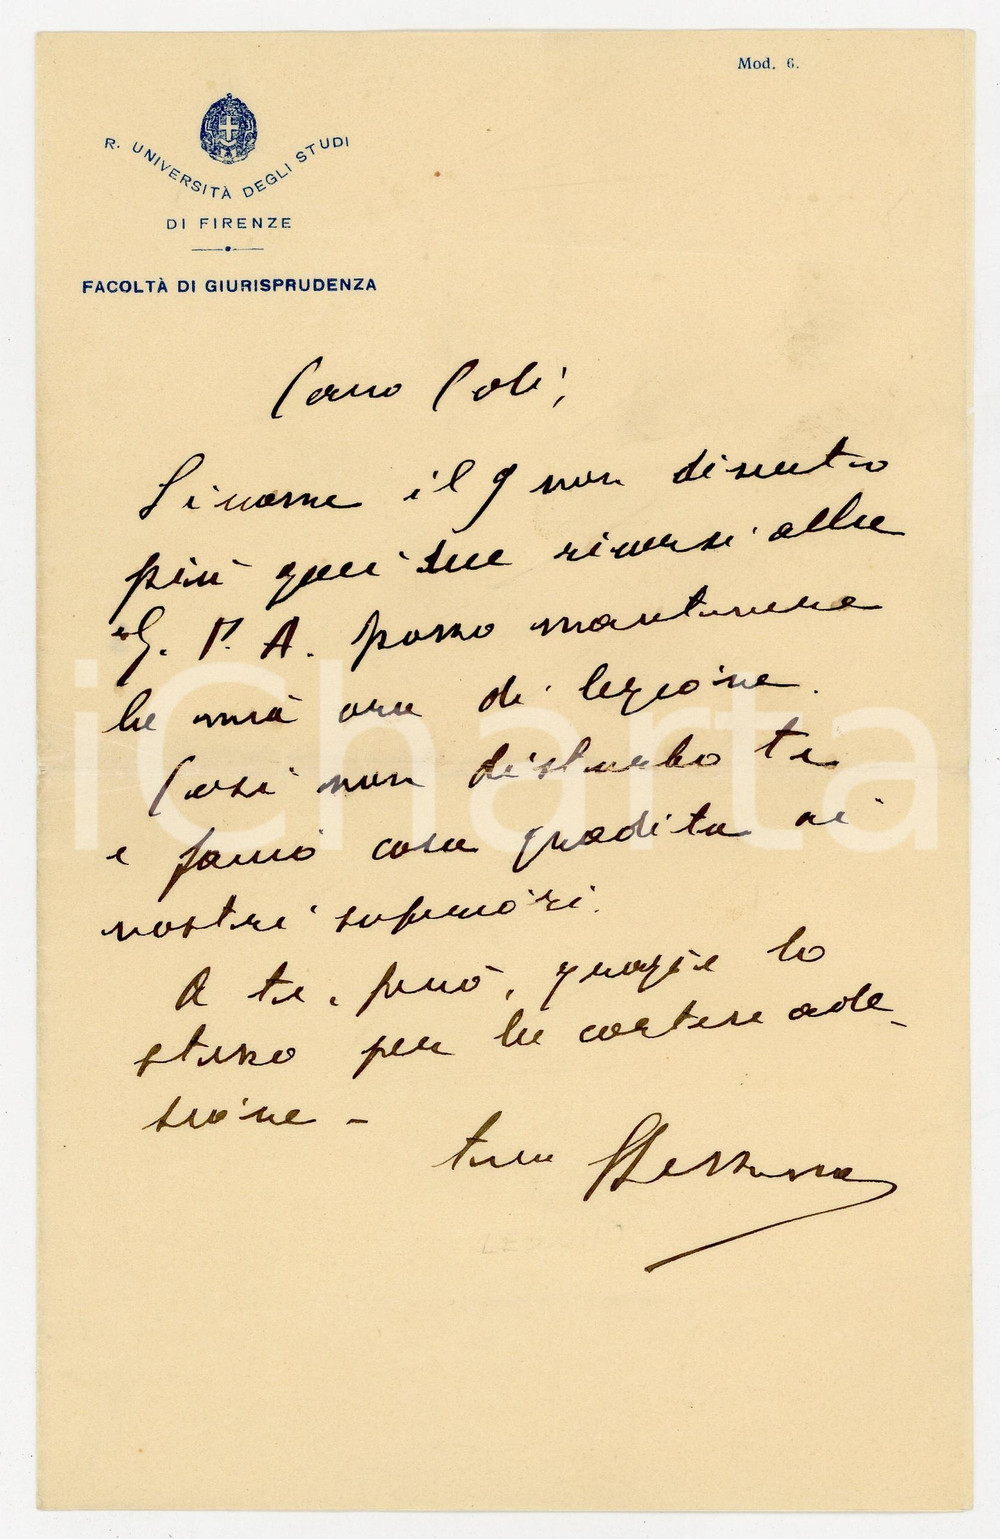 Mod. 6.
R. UNIVERSITÀ DEGLI STUDI
DI FIRENZE
FACOLTÀ DI GIURISPRUDENZA
Caro Coli,
Siccome il 9 non discuto
più quei due ricorsi alla
G. P. A. posso mantenere
la mia ora di lezione.
Così non disturbo te
e faccio cosa gradita ai
nostri superiori.
A te, però, grazie lo
stesso per la cortese ade-
sione -
tuo
iCharta